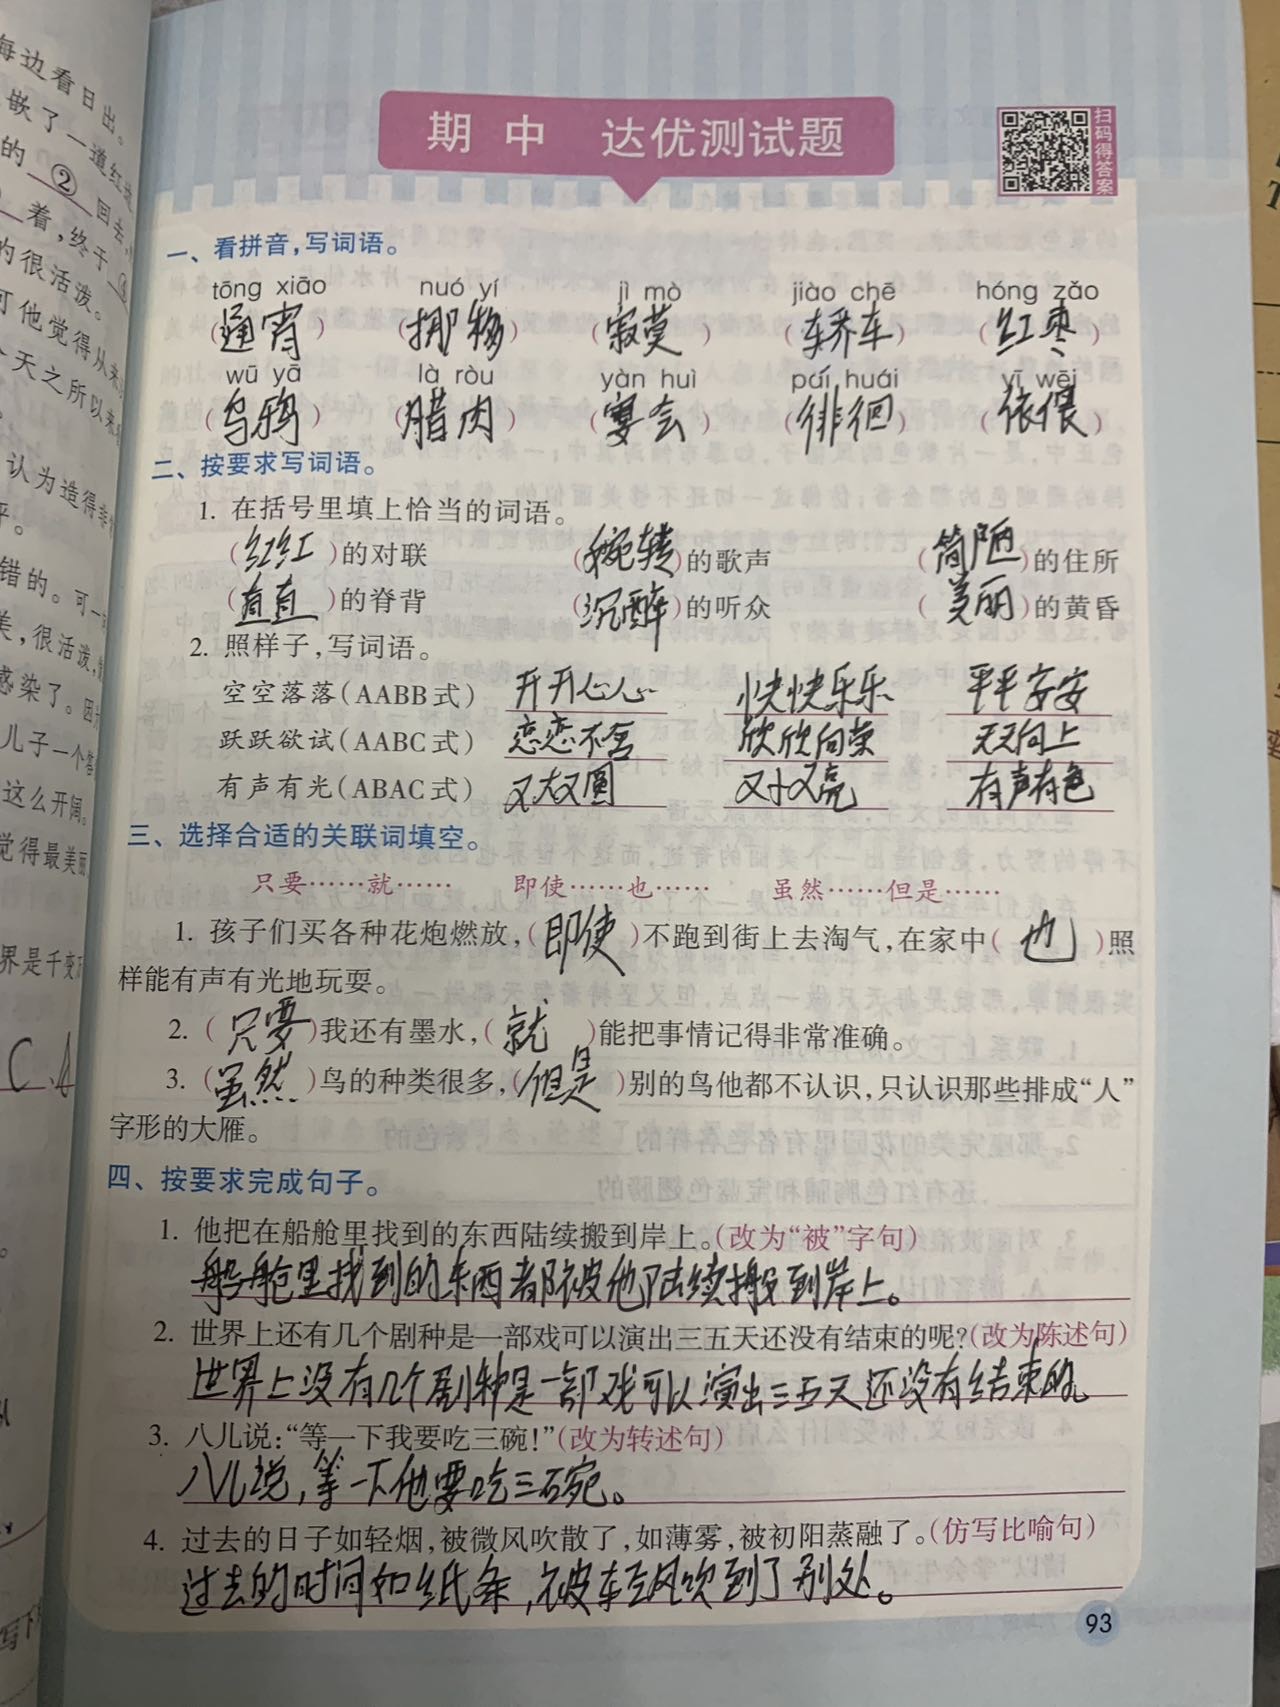 每边看日出。
嵌了一道红
的②回去
着，终于
的很活泼。
可他觉得从来
天之所以来
认为造得幸
平。
错的。可一
美，很活泼，
感染了。因
儿子一个答
这么开阔。
觉得最美丽
界是千变万
C A
写下
期中 达优测试题
扫码得答案
一、看拼音，写词语。
tōng xiāo nuó yí jì mò jiào chē hóng zǎo
（通宵）（挪移）（寂莫）（轿车）（红枣）
wū yā là ròu yàn huì pái huái yī wēi
（乌鸦）（腊肉）（宴会）（徘徊）（依偎）
二、按要求写词语。
1. 在括号里填上恰当的词语。
（红红）的对联 （婉转）的歌声 （简陋）的住所
（直直）的脊背 （沉醉）的听众 （美丽）的黄昏
2. 照样子，写词语。
空空落落（AABB式） 开开心心 快快乐乐 平平安安
跃跃欲试（AABC式） 恋恋不舍 欣欣向荣 天天向上
有声有光（ABAC式） 又大又圆 又小又亮 有声有色
三、选择合适的关联词填空。
只要……就…… 即使……也…… 虽然……但是……
1. 孩子们买各种花炮燃放，（即使）不跑到街上去淘气，在家中（也）照
样能有声有光地玩耍。
2.（只要）我还有墨水，（就）能把事情记得非常准确。
3.（虽然）鸟的种类很多，（但是）别的鸟他都不认识，只认识那些排成“人”
字形的大雁。
四、按要求完成句子。
1. 他把在船舱里找到的东西陆续搬到岸上。（改为“被”字句）
船舱里找到的东西都被他陆续搬到岸上。
2. 世界上还有几个剧种是一部戏可以演出三五天还没有结束的呢?（改为陈述句）
世界上没有几个剧种是一部戏可以演出三五天还没有结束的。
3. 八儿说：“等一下我要吃三碗！”（改为转述句）
八儿说，等一下他要吃三碗。
4. 过去的日子如轻烟，被微风吹散了，如薄雾，被初阳蒸融了。（仿写比喻句）
过去的时间如纸条，被轻风吹到了别处。
93